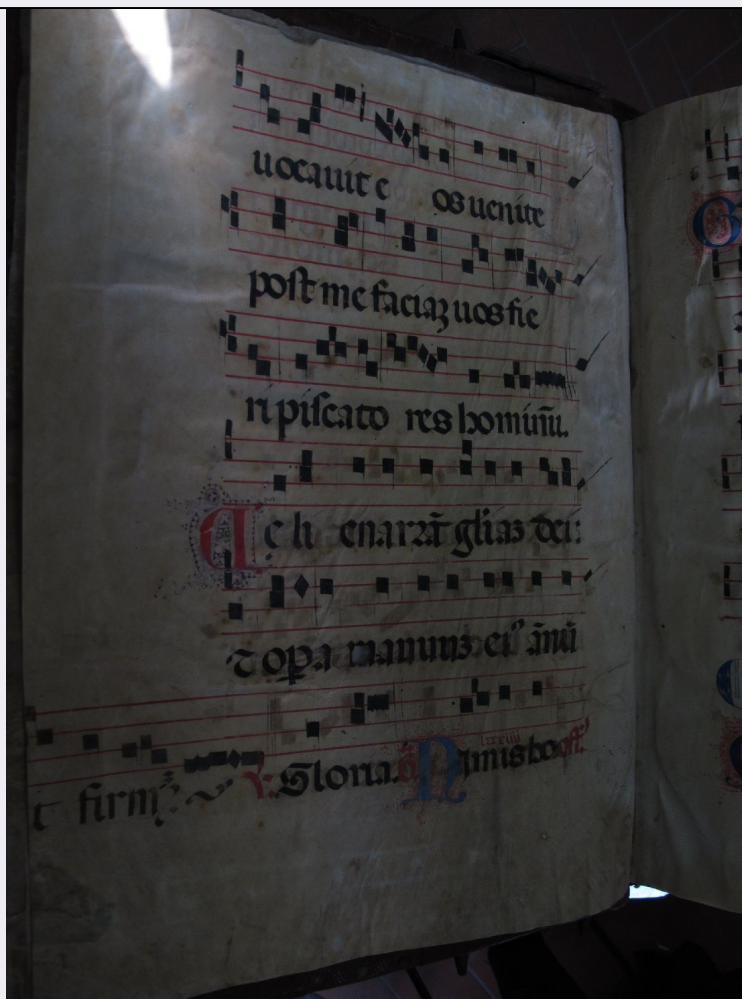 uocauit e os uenite
post me faciaꝫ uos fie
ri piscato res hominū.
Celi enarrāt gliaꝫ dei:
⁊ opa manuuꝫ ei᷒ ānū
t firm
℣. Gloria. Nimis ho off.